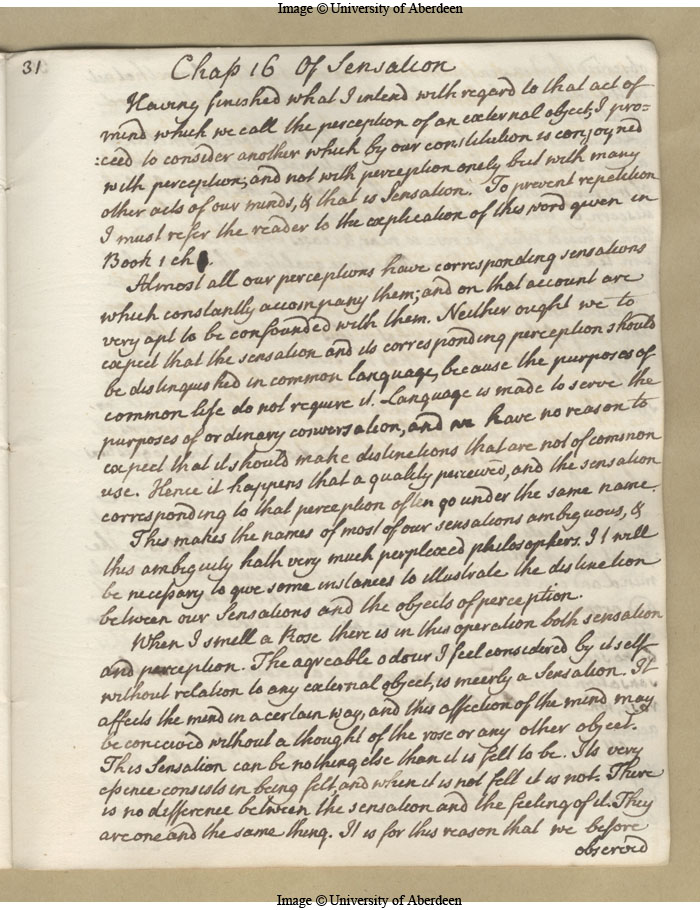 Image © University of Aberdeen
31
Chap 16 Of Sensation
Having finished what I intend with regard to that act of
mind which we call the perception of an external object, I pro=
:ceed to consider another which by our constitution is conjoyned
with perception; and not with perception onely but with many
other acts of our minds, & that is Sensation. To prevent repetition
I must refer the reader to the explication of this word given in
Book 1 ch .
Almost all our perceptions have corresponding sensations
which constantly accompany them; and on that account are
very apt to be confounded with them. Neither ought we to
expect that the sensation and its corresponding perception should
be distinguished in common language, because the purposes of
common life do not require it. Language is made to serve the
purposes of ordinary conversation, and we have no reason to
expect that it should make distinctions that are not of common
use. Hence it happens that a quality perceived, and the sensation
corresponding to that perception often go under the same name.
This makes the names of most of our sensations ambiguous, &
this ambiguity hath very much perplexed philosophers. It will
be necessary to give some instances to illustrate the distinction
between our Sensations and the objects of perception.
When I smell a Rose there is in this operation both sensation
and perception. The agreable odour I feel considered by itself
without relation to any external object, is meerly a Sensation. It
affects the mind in a certain way, and this affection of the mind may
be conceived without a thought of the rose or any other object.
This Sensation can be nothing else than it is felt to be. Its very
essence consists in being felt, and when it is not felt it is not. There
is no difference between the sensation and the feeling of it. They
are one and the same thing. It is for this reason that we before
observed
Image © University of Aberdeen